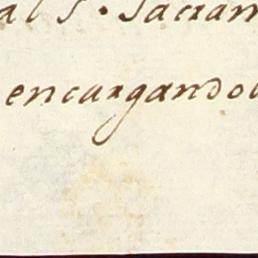 al S. Sacram
encargando